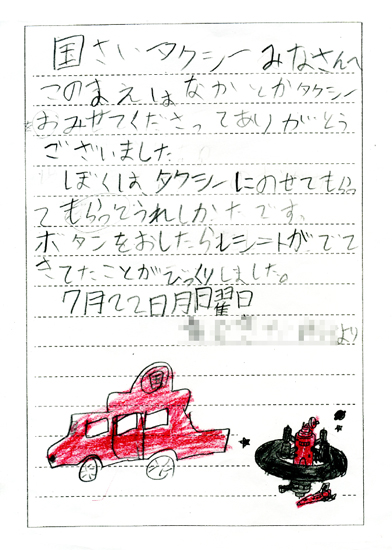 国さいタクシーみなさんへ
このまえはなかとかタクシー
おみせてくださってありがとう
ございました
ぼくはタクシーにのせてもらっ
てもらってうれしかたです。
ボタンをおしたらレシートがでて
きてたことがびっくりしました。
7月22日月曜日
より
国